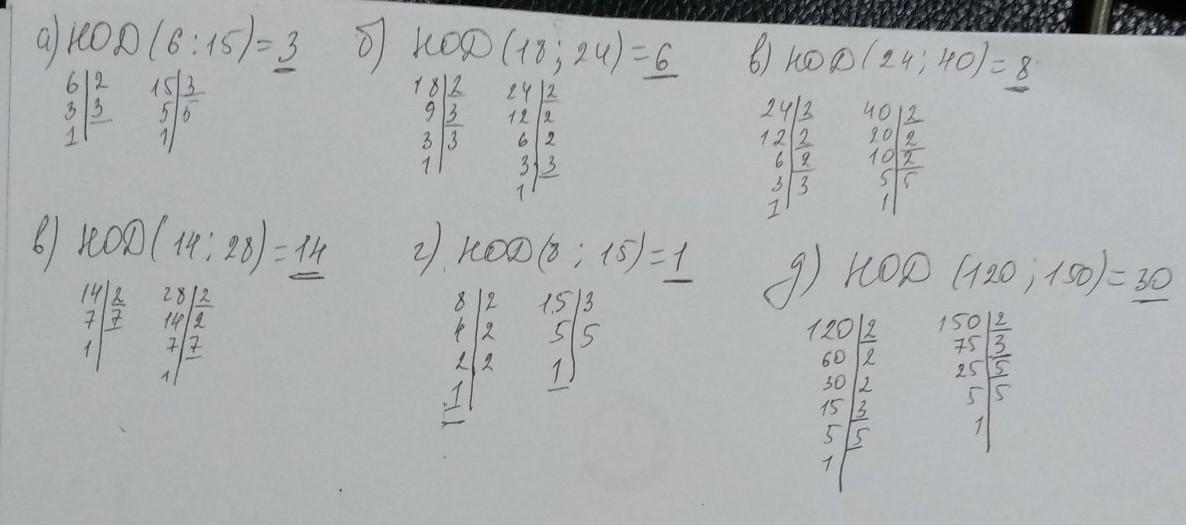 а) НОД(6:15)=3
6|2 15|3
3|3 5|5
1| 1|
б) НОД(18;24)=6
18|2 24|2
9|3 12|2
3|3 6|2
1| 3|3
1|
в) НОД(24;40)=8
24|2 40|2
12|2 20|2
6|2 10|2
3|3 5|5
1| 1|
в) НОД(14;28)=14
14|2 28|2
7|7 14|2
1| 7|7
1|
г) НОД(8;15)=1
8|2 15|3
4|2 5|5
2|2 1|
1|
д) НОД(120;150)=30
120|2 150|2
60|2 75|3
30|2 25|5
15|3 5|5
5|5 1|
1|